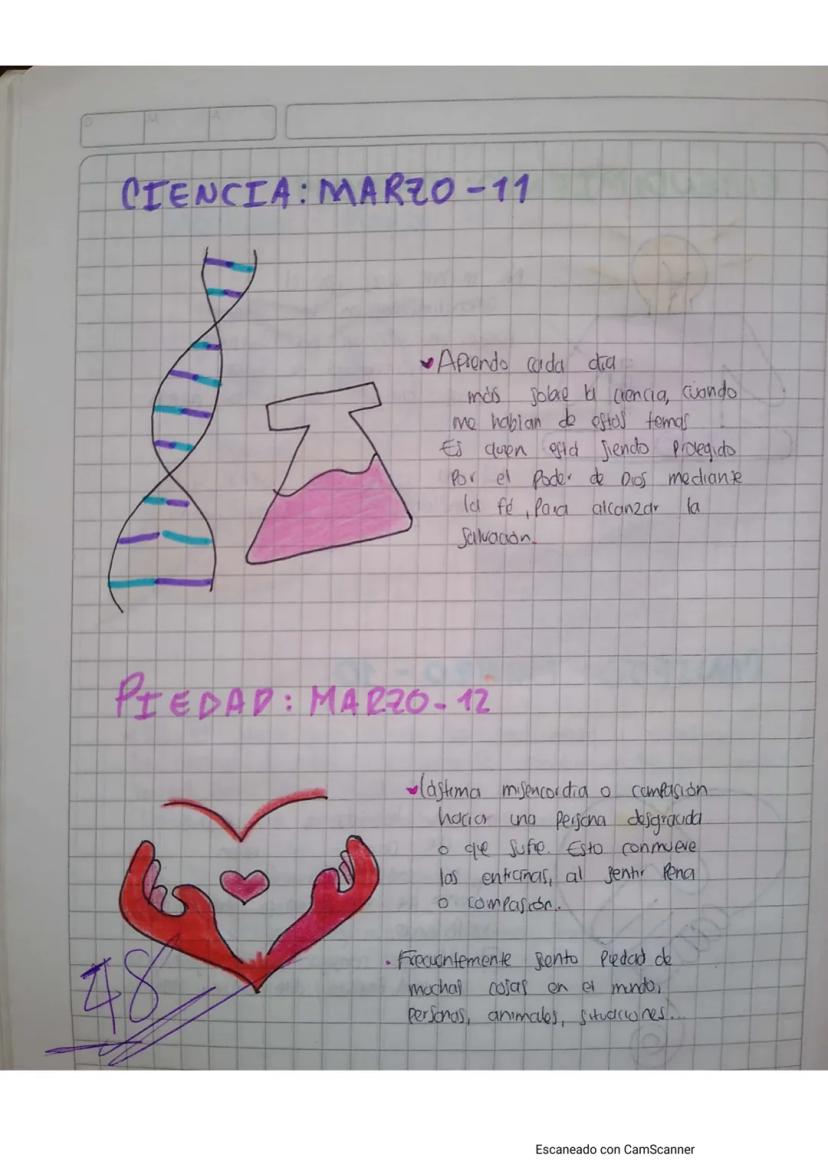 D M A
CIENCIA: MARZO - 11
Aprendo cada dia
más sobre la ciencia, cuando
me hablan de estos temas
Es quien está siendo protegido
Por el Poder de Dios mediante
la fé, Para alcanzar la
Salvación.
PIEDAD: MARZO - 12
lástima misericordia o compasión
hacia una persona desgraciada
o que sufre. Esto conmueve
las entrañas, al sentir Pena
o compasión.
. Frecuentemente siento Piedad de
muchas cosas en el mundo,
Personas, animales, situaciones...
48
Escaneado con CamScanner